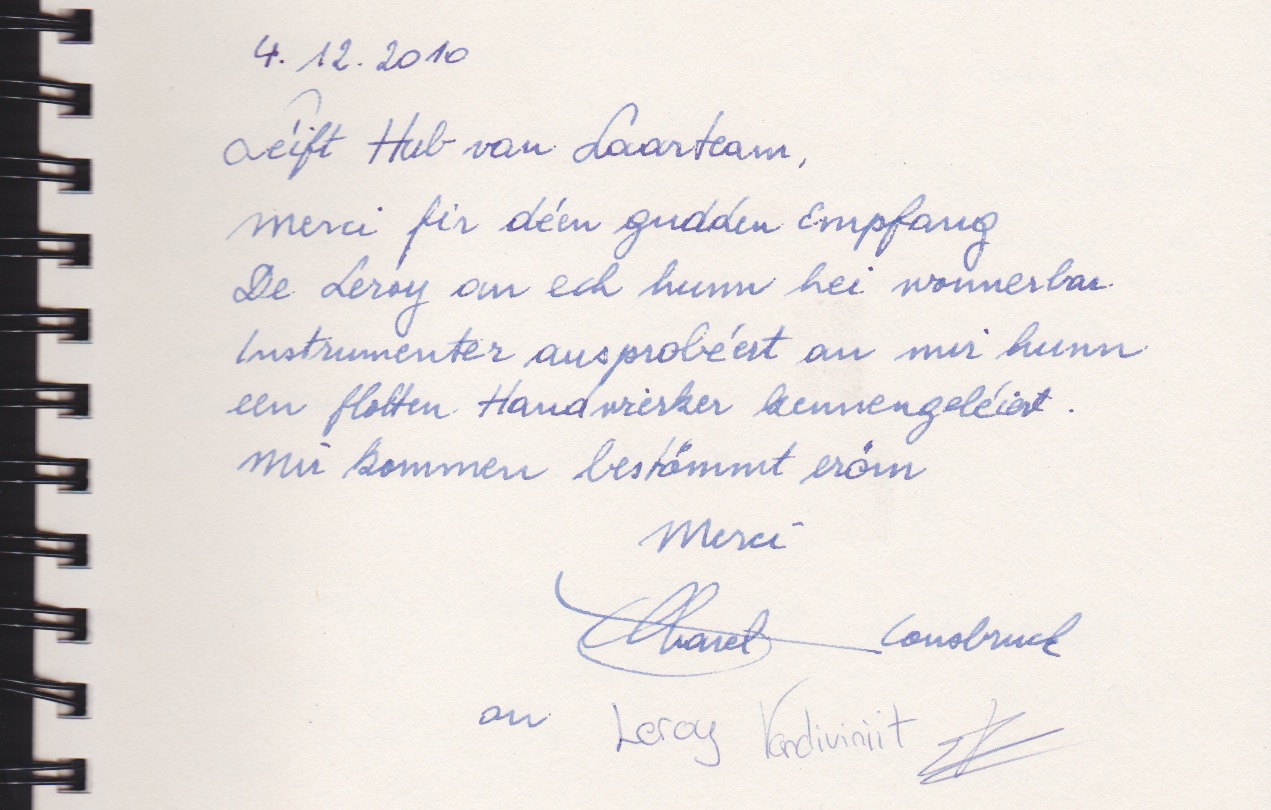 4.12.2010
Léift Hub van Laarteam,
Merci fir déen gudden Empfang
De Leroy an ech hunn hei wonnerbar
Instrumenter ausprobéiert an mir hunn
een flotten Handwierker kennengeléiert.
Mir kommen bestömmt eröm
Merci
Consbruck
an Leroy